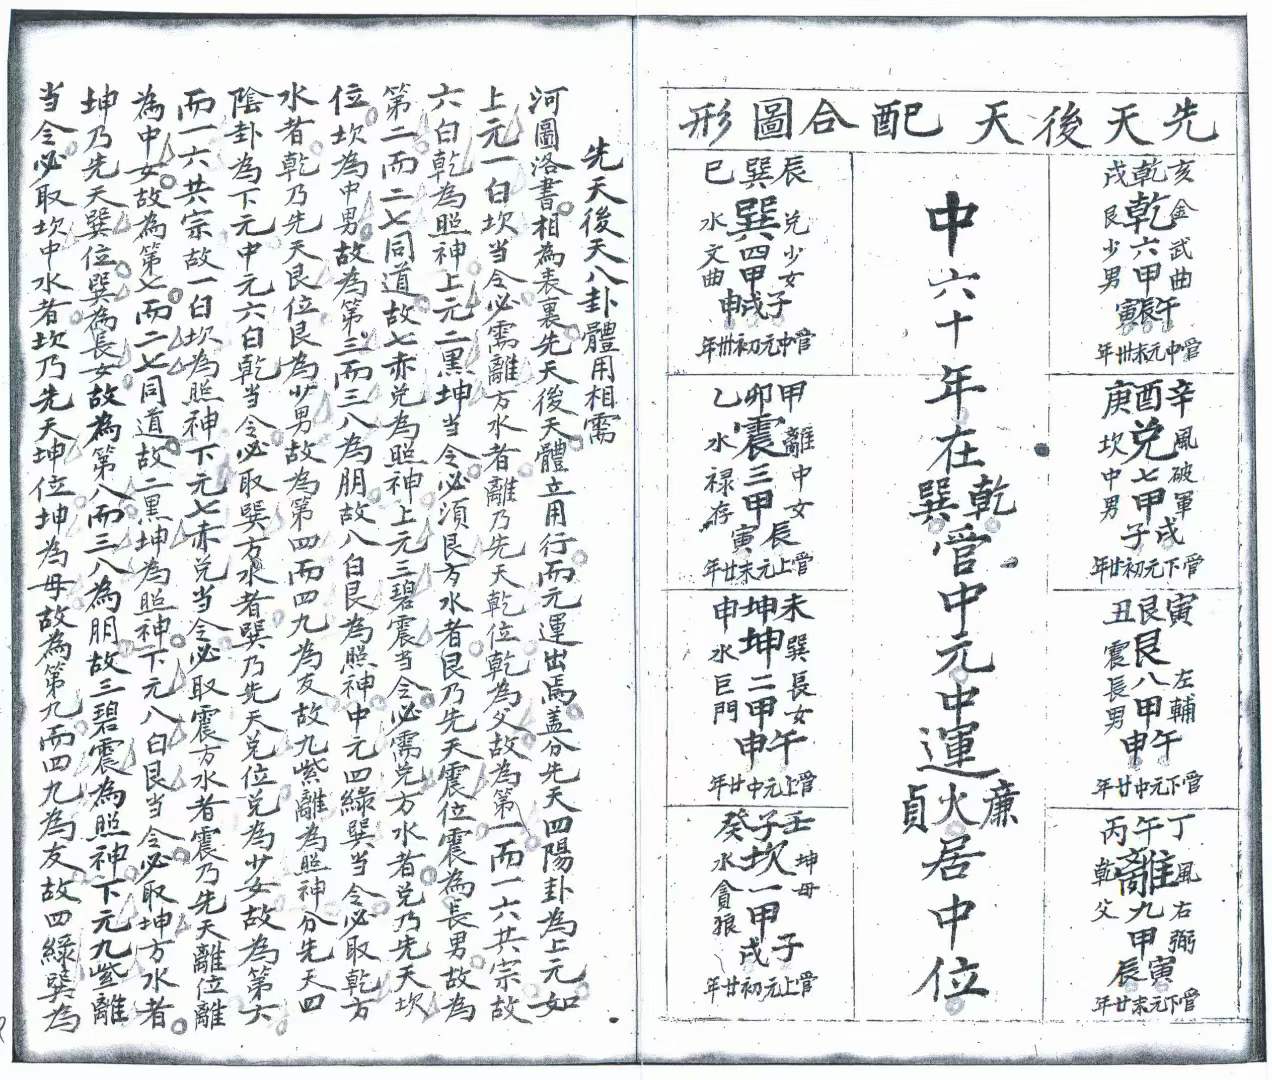 先天後天配合圖形
亥乾戌
金武曲
乾六甲
午辰寅
艮少男
管中元末卅年
辛酉庚
風破軍
兌七甲
戌子
坎中男
管下元初廿年
寅艮丑
左輔
艮八甲
午申
震長男
管下元中廿年
丁午丙
風右弼
離九甲
寅辰
乾父
管下元末廿年
中六十年在乾巽管中元中運廉火貞居中位
辰巽巳
兌少女
巽四甲
子戌申
水文曲
管中元初卅年
甲卯乙
離中女
震三甲
辰寅
水禄存
管上元末廿年
未坤申
巽長女
坤二甲
午申
水巨門
管上元中廿年
壬子癸
坤母
坎一甲
子戌
水貪狼
管上元初廿年
先天後天八卦體用相需
河圖洛書相為表裏先天後天體立用行而元運出焉蓋分先天四陽卦為上元如
上元一白坎当令必需離方水者離乃先天乾位乾為父故為第一而一六共宗故
六白乾為照神上元二黑坤当令必須艮方水者艮乃先天震位震為長男故為
第二而二七同道故七赤兌為照神上元三碧震当令必需兌方水者兌乃先天坎
位坎為中男故為第三而三八為朋故八白艮為照神中元四綠巽当令必取乾方
水者乾乃先天艮位艮為少男故為第四而四九為友故九紫離為照神分先天四
陰卦為下元中元六白乾当令必取巽方水者巽乃先天兌位兌為少女故為第六
而一六共宗故一白坎為照神下元七赤兌当令必取震方水者震乃先天離位離
為中女故為第七而二七同道故二黑坤為照神下元八白艮当令必取坤方水者
坤乃先天巽位巽為長女故為第八而三八為朋故三碧震為照神下元九紫離
当令必取坎中水者坎乃先天坤位坤為母故為第九而四九為友故四綠巽為